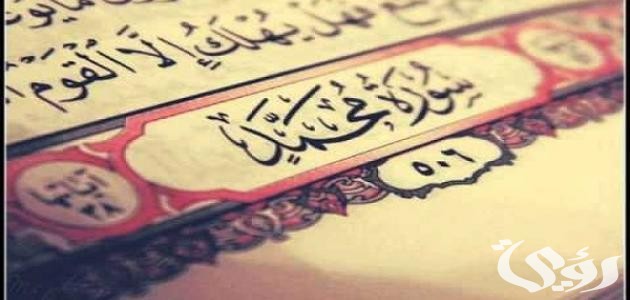 فَهَلْ يُهْلَكُ إِلَّا ٱلْقَوْمُ
سُورَةُ مُحَمَّدٍ
آياتها ٣٨
٥٠٦
رؤية